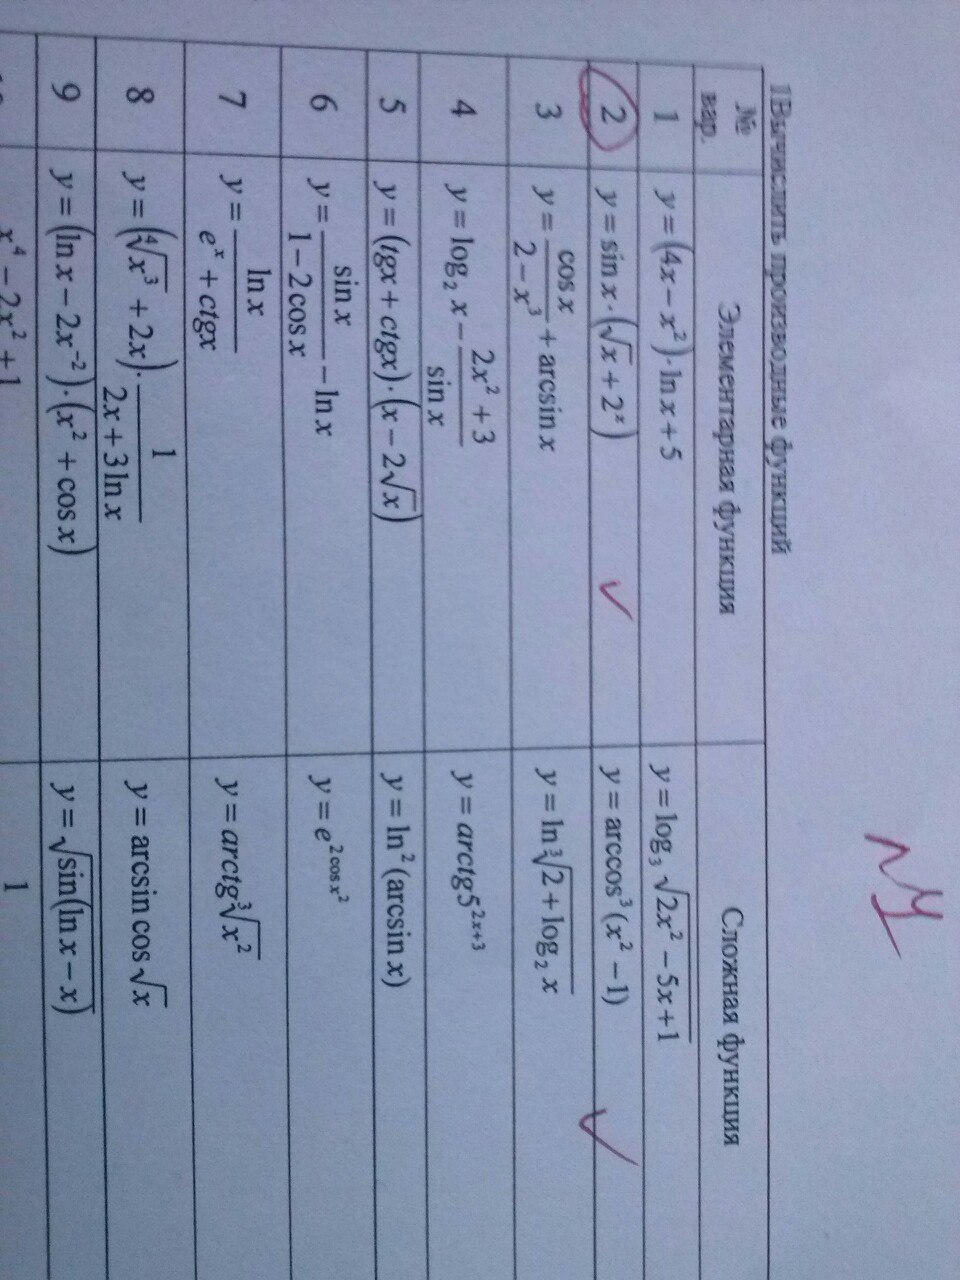 №1
1Вычислить производные функций
№ вар. Элементарная функция Сложная функция
1 y = (4x − x²)·ln x + 5 y = log₃ √(2x² − 5x + 1)
2 y = sin x·(√x + 2ˣ) y = arccos³(x² − 1)
3 y = cos x / (2 − x³) + arcsin x y = ln ∛(2 + log₂ x)
4 y = log₂ x − (2x² + 3) / sin x y = arctg5²ˣ⁺³
5 y = (tgx + ctgx)·(x − 2√x) y = ln²(arcsin x)
6 y = sin x / (1 − 2cos x) − ln x y = e^(2cos x²)
7 y = ln x / (eˣ + ctgx) y = arctg ∛(x²)
8 y = (∜(x³) + 2x)· 1 / (2x + 3ln x) y = arcsin cos √x
9 y = (ln x − 2x⁻²)·(x² + cos x) y = √(sin(ln x − x))
x⁴ − 2x² + 1 1